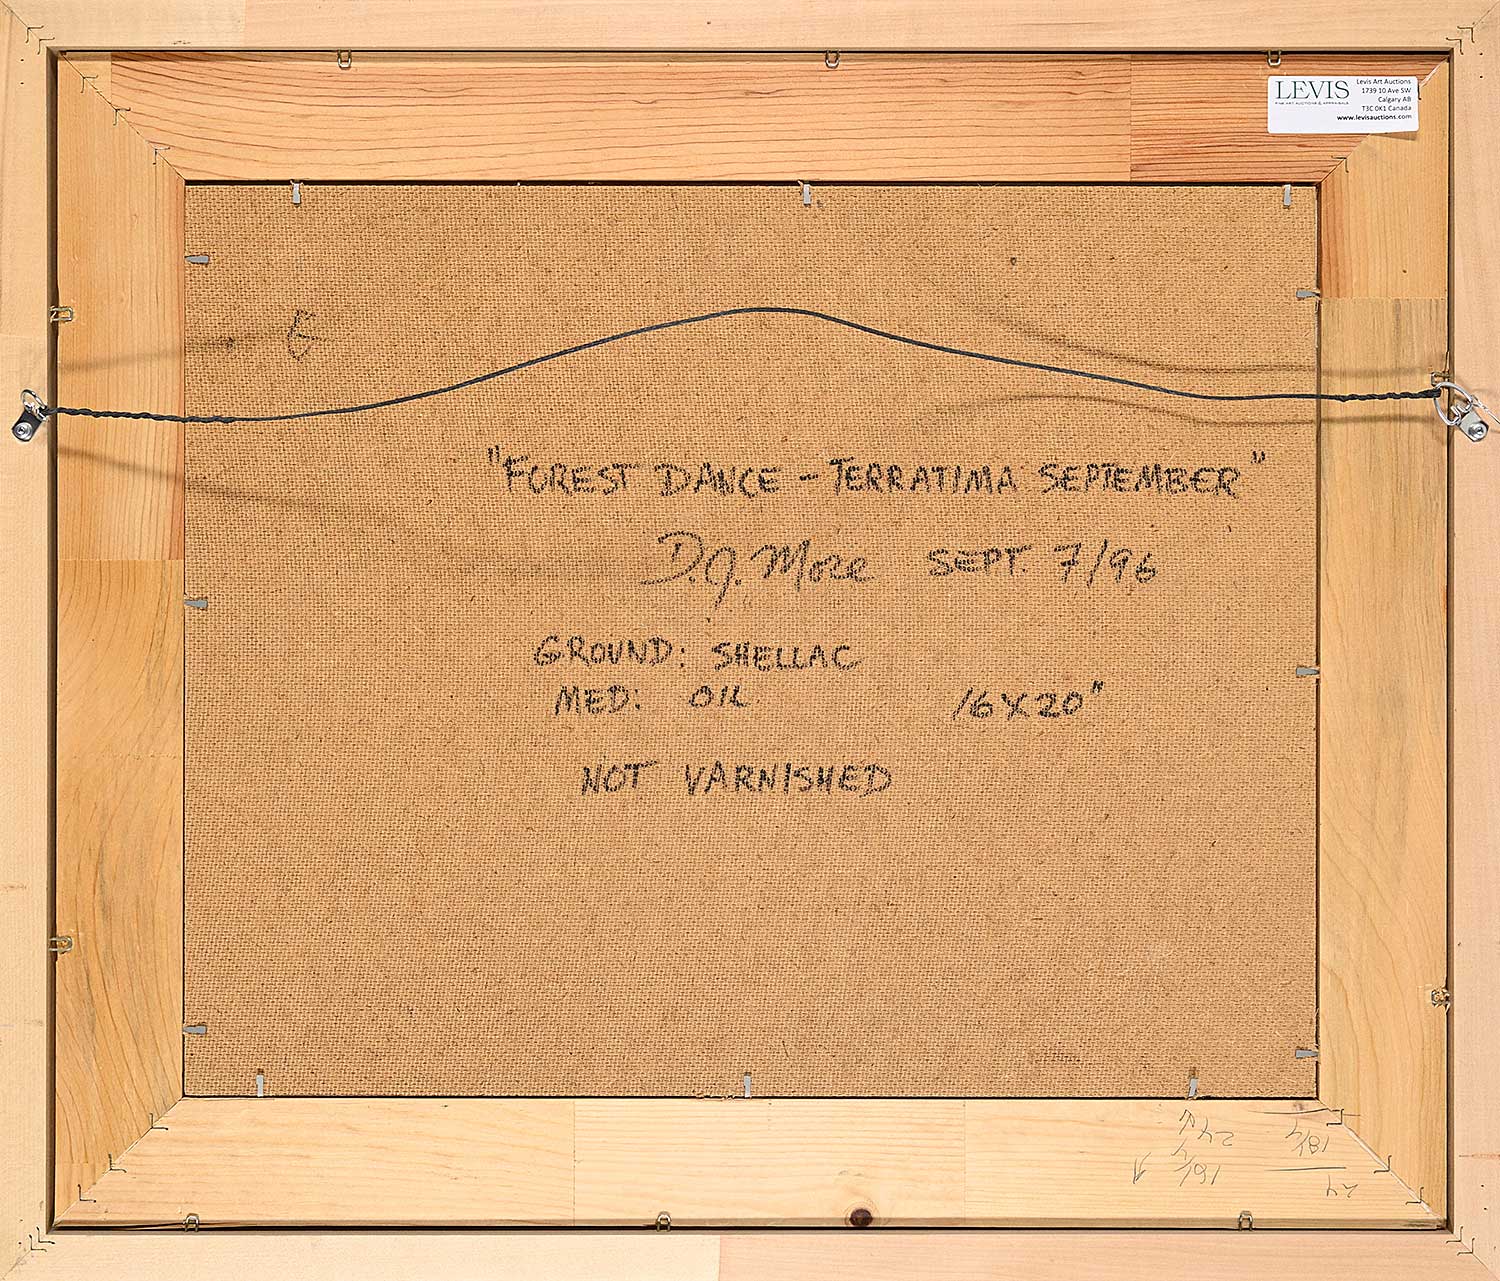 LEVIS
FINE ART AUCTIONS & APPRAISALS
Levis Art Auctions
1739 10 Ave SW
Calgary AB
T3C 0K1 Canada
www.levisauctions.com
"FOREST DANCE - TERRATIMA SEPTEMBER"
D.J. More SEPT. 7/96
GROUND: SHELLAC
MED: OIL 16 X 20"
NOT VARNISHED